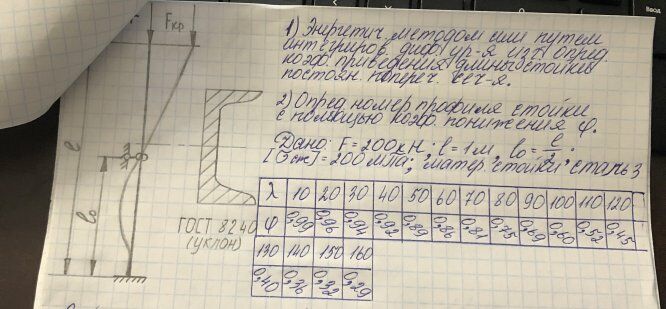 Fкр
1) Энергетич. методом или путем
интегриров. диф. ур-я изг. опред.
коэф. приведения длины стойки
постоян. попереч. сеч-я.
2) Опред номер профиля стойки
с помощью коэф. понижения φ.
Дано: F=200кН; l=1м, l₀=l/2;
[σсж]=200мПа; матер. стойки: сталь 3
l
l₀
ГОСТ 8240
(уклон)
λ 10 20 30 40 50 60 70 80 90 100 110 120
φ 0,99 0,96 0,94 0,92 0,89 0,86 0,81 0,75 0,69 0,60 0,52 0,45
130 140 150 160
0,40 0,36 0,32 0,29